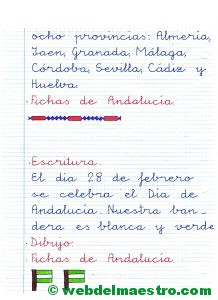 ocho provincias: Almería,
Jaen, Granada, Málaga,
Córdoba, Sevilla, Cádiz y
Huelva.
·Fichas de Andalucía.
·Escritura.
El día 28 de febrero
se celebra el Día de
Andalucía. Nuestra ban_
dera es blanca y verde
·Dibujo:
·Fichas de Andalucía
© webdelmaestro.com